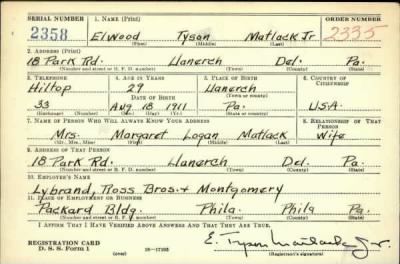 SERIAL NUMBER 1. NAME (Print) ORDER NUMBER
2358 Elwood Tyson Matlack Jr 2335
(First) (Middle) (Last)
2. ADDRESS (Print)
18 Park Rd. Llanerch Del. Pa.
(Number and street or R. F. D. number) (Town) (County) (State)
3. TELEPHONE 4. AGE IN YEARS 5. PLACE OF BIRTH 6. COUNTRY OF CITIZENSHIP
Hiltop 29 Llanerch
DATE OF BIRTH (Town or county)
33 Aug 18 1911 Pa. USA.
(Exchange) (Number) (Mo.) (Day) (Yr.) (State or country)
7. NAME OF PERSON WHO WILL ALWAYS KNOW YOUR ADDRESS 8. RELATIONSHIP OF THAT PERSON
Mrs. Margaret Logan Matlack Wife
(Mr., Mrs., Miss) (First) (Middle) (Last)
9. ADDRESS OF THAT PERSON
18 Park Rd. Llanerch Del Pa.
(Number and street or R. F. D. number) (Town) (County) (State)
10. EMPLOYER'S NAME
Lybrand, Ross Bros. + Montgomery
11. PLACE OF EMPLOYMENT OR BUSINESS
Packard Bldg. Phila. Phila Pa.
(Number and street or R. F. D. number) (Town) (County) (State)
I AFFIRM THAT I HAVE VERIFIED ABOVE ANSWERS AND THAT THEY ARE TRUE.
REGISTRATION CARD E. Tyson Matlack Jr.
D. S. S. Form 1 (over) 16-17105 (Registrant's signature)